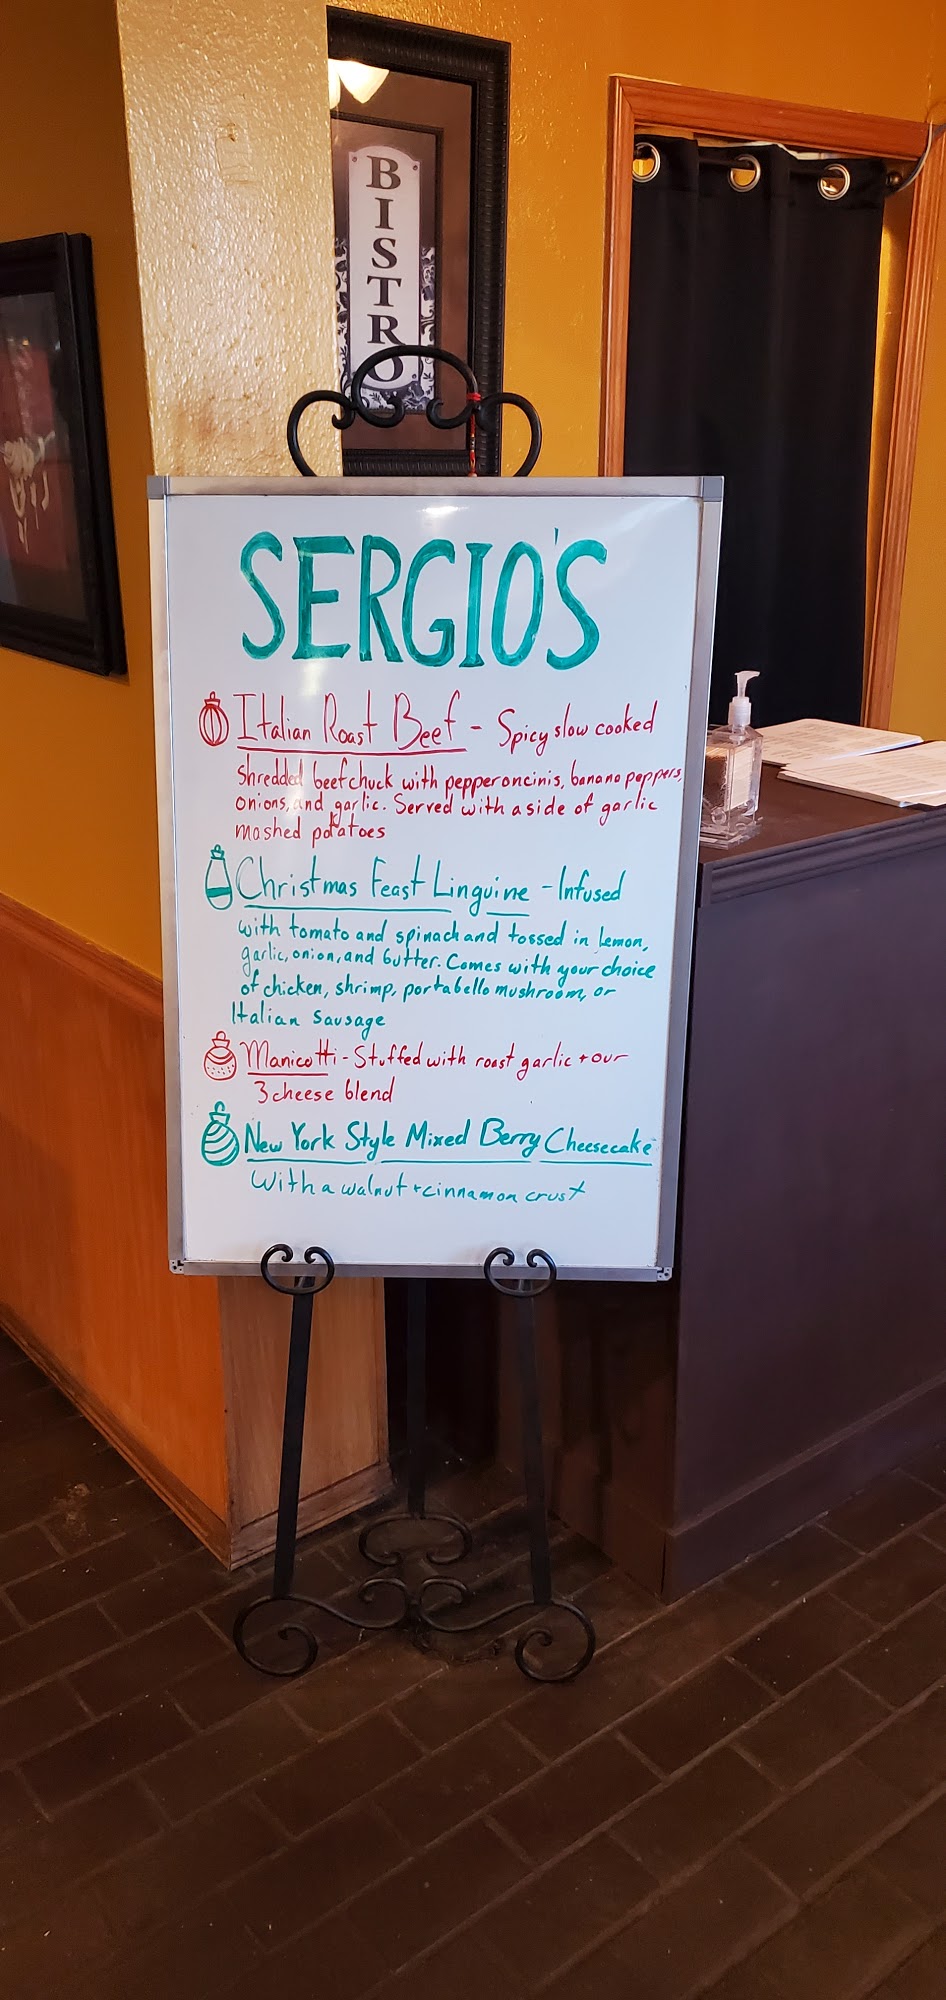 BISTRO
SERGIO'S
Italian Roast Beef - Spicy slow cooked
shredded beef chuck with pepperoncinis, banana peppers,
onions, and garlic. Served with a side of garlic
mashed potatoes
Christmas Feast Linguine - Infused
with tomato and spinach and tossed in lemon,
garlic, onion, and butter. Comes with your choice
of chicken, shrimp, portabello mushroom, or
Italian Sausage
Manicotti - Stuffed with roast garlic + our
3 cheese blend
New York Style Mixed Berry Cheesecake
With a walnut + cinnamon crust